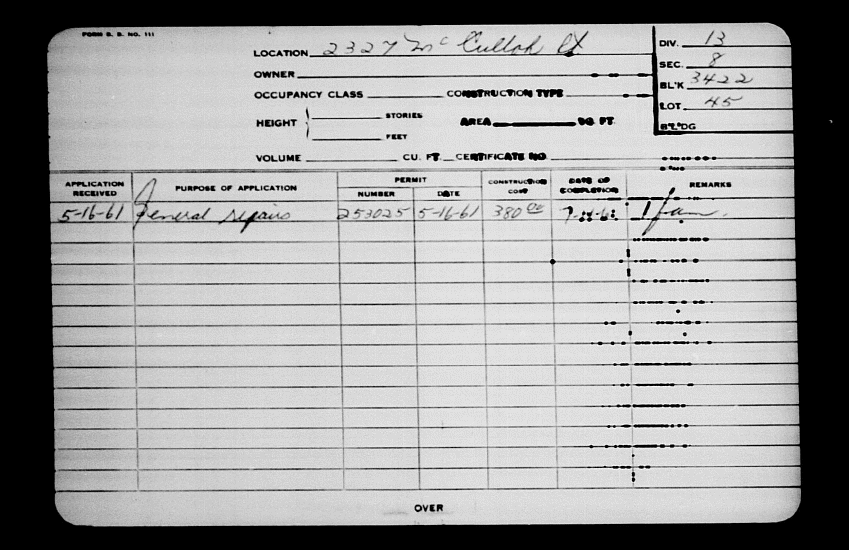 FORM B. B. NO. 111
LOCATION 2327 Mc Culloh St
OWNER
OCCUPANCY CLASS CONSTRUCTION TYPE
HEIGHT STORIES FEET
AREA SQ FT
VOLUME CU. FT. CERTIFICATE NO
DIV. 13
SEC. 8
BL'K 3422
LOT 45
BLDG
APPLICATION RECEIVED PURPOSE OF APPLICATION PERMIT NUMBER DATE CONSTRUCTION COST DATE OF COMPLETION REMARKS
5-16-61 General repairs 253025 5-16-61 380 00 1 fam.
OVER